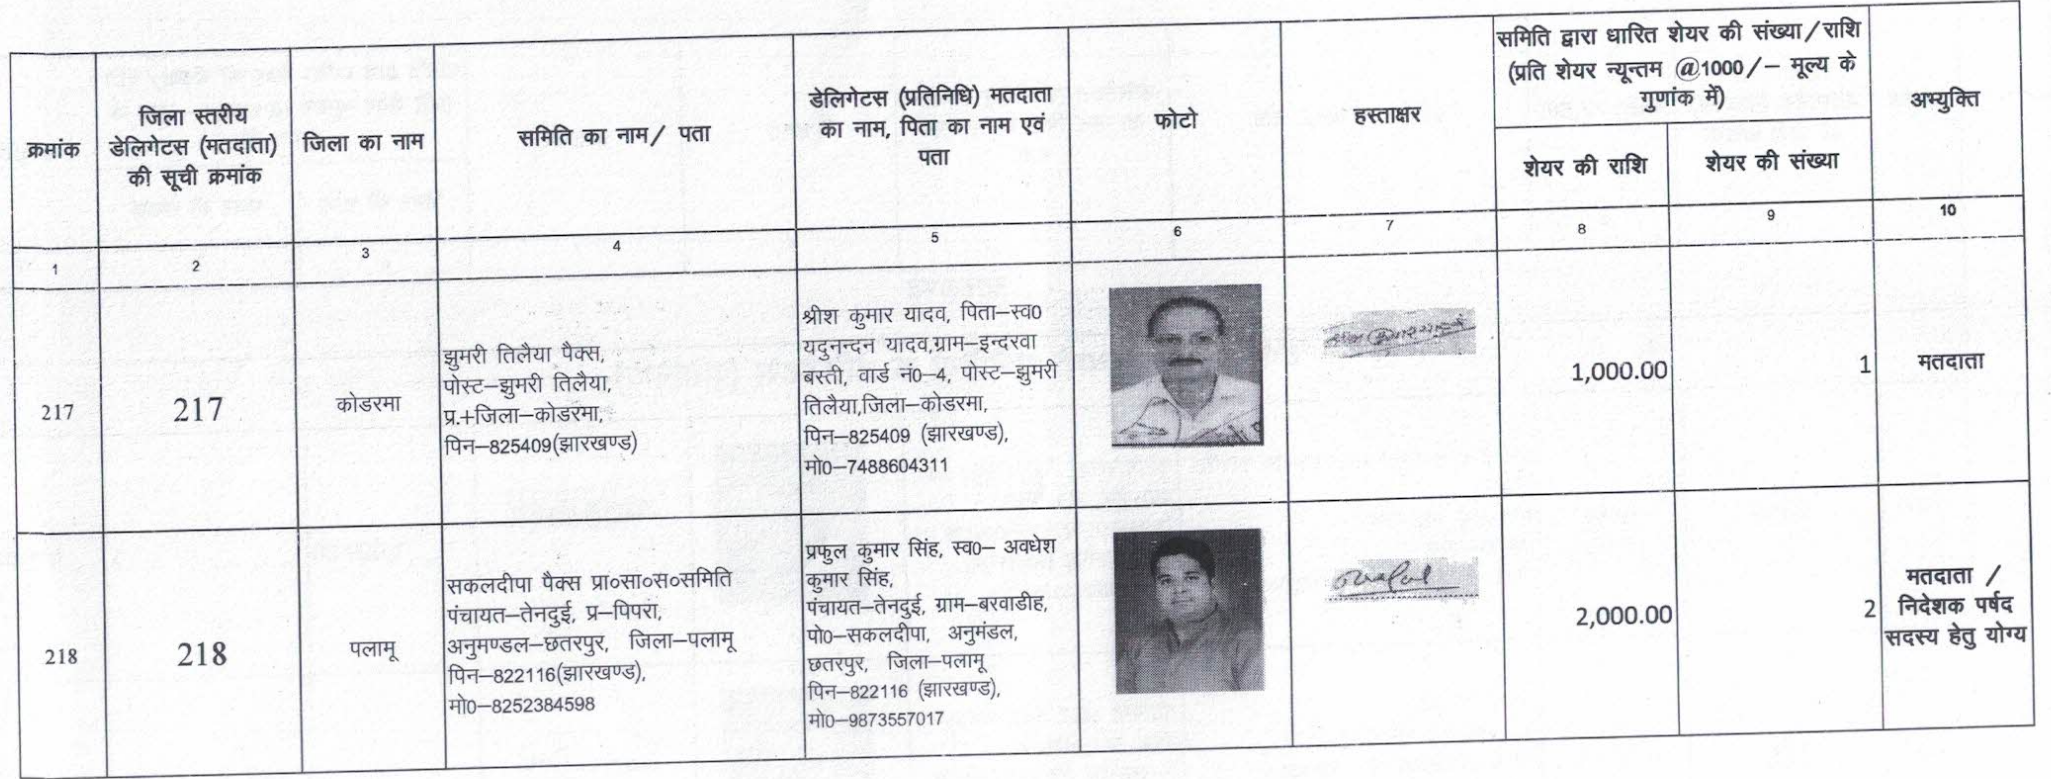 क्रमांक
जिला स्तरीय
डेलिगेटस (मतदाता)
की सूची क्रमांक
जिला का नाम
समिति का नाम/ पता
डेलिगेटस (प्रतिनिधि) मतदाता
का नाम, पिता का नाम एवं
पता
फोटो
हस्ताक्षर
समिति द्वारा धारित शेयर की संख्या/राशि
(प्रति शेयर न्यून्तम @1000/– मूल्य के
गुणांक में)
शेयर की राशि
शेयर की संख्या
अभ्युक्ति
1
2
3
4
5
6
7
8
9
10
217
217
कोडरमा
झुमरी तिलैया पैक्स,
पोस्ट–झुमरी तिलैया,
प्र.+जिला–कोडरमा,
पिन–825409(झारखण्ड)
श्रीश कुमार यादव, पिता–स्व0
यदुनन्दन यादव,ग्राम–इन्दरवा
बस्ती, वार्ड नं0–4, पोस्ट–झुमरी
तिलैया,जिला–कोडरमा,
पिन–825409 (झारखण्ड),
मो0–7488604311
1,000.00
1
मतदाता
218
218
पलामू
सकलदीपा पैक्स प्रा०सा०स०समिति
पंचायत–तेनदुई, प्र–पिपरा,
अनुमण्डल–छतरपुर, जिला–पलामू
पिन–822116(झारखण्ड),
मो0–8252384598
प्रफुल कुमार सिंह, स्व0– अवधेश
कुमार सिंह,
पंचायत–तेनदुई, ग्राम–बरवाडीह,
पो0–सकलदीपा, अनुमंडल,
छतरपुर, जिला–पलामू
पिन–822116 (झारखण्ड),
मो0–9873557017
2,000.00
2
मतदाता /
निदेशक पर्षद
सदस्य हेतु योग्य